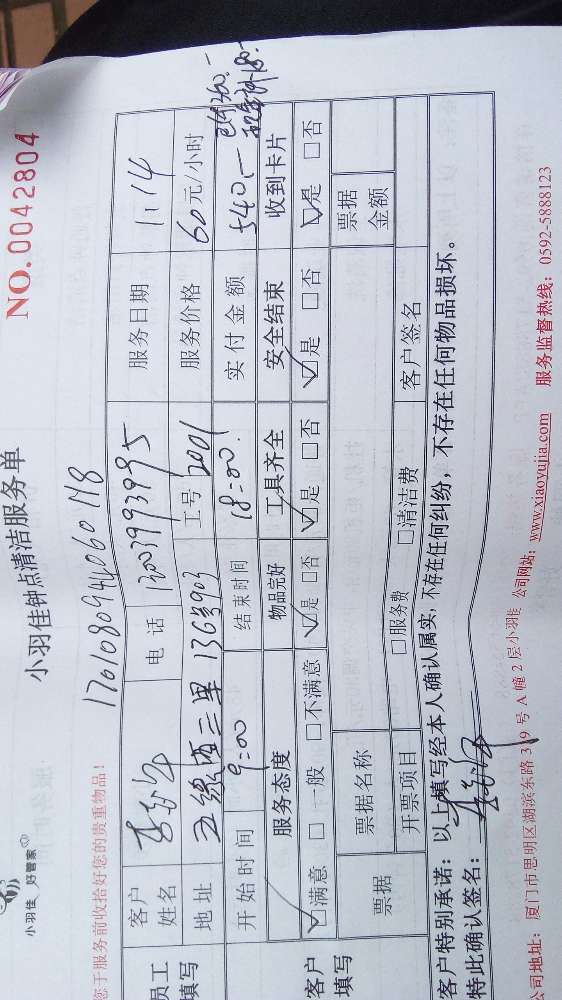 小羽佳 好管家
小羽佳钟点清洁服务单
NO.0042804
您于服务前收拾好您的贵重物品！
1701080946060118
员工填写
客户姓名
电话 13003993995
服务日期 1.14
地址 136号903
工号 2001
服务价格 60元/小时
开始时间 9:00
结束时间 18:00
实付金额 540.-
客户填写
服务态度 物品完好 工具齐全 安全结束 收到卡片
☑满意 □一般 □不满意 ☑是 □否 ☑是 □否 ☑是 □否 ☑是 □否
票据
票据名称
票据金额
开票项目 □服务费 □清洁费
客户签名
客户特别承诺：以上填写经本人确认属实，不存在任何纠纷，不存在任何物品损坏。
特此确认签名：
公司地址：厦门市思明区湖滨东路319号A幢2层小羽佳 公司网站：www.xiaoyujia.com 服务监督热线：0592-5888123